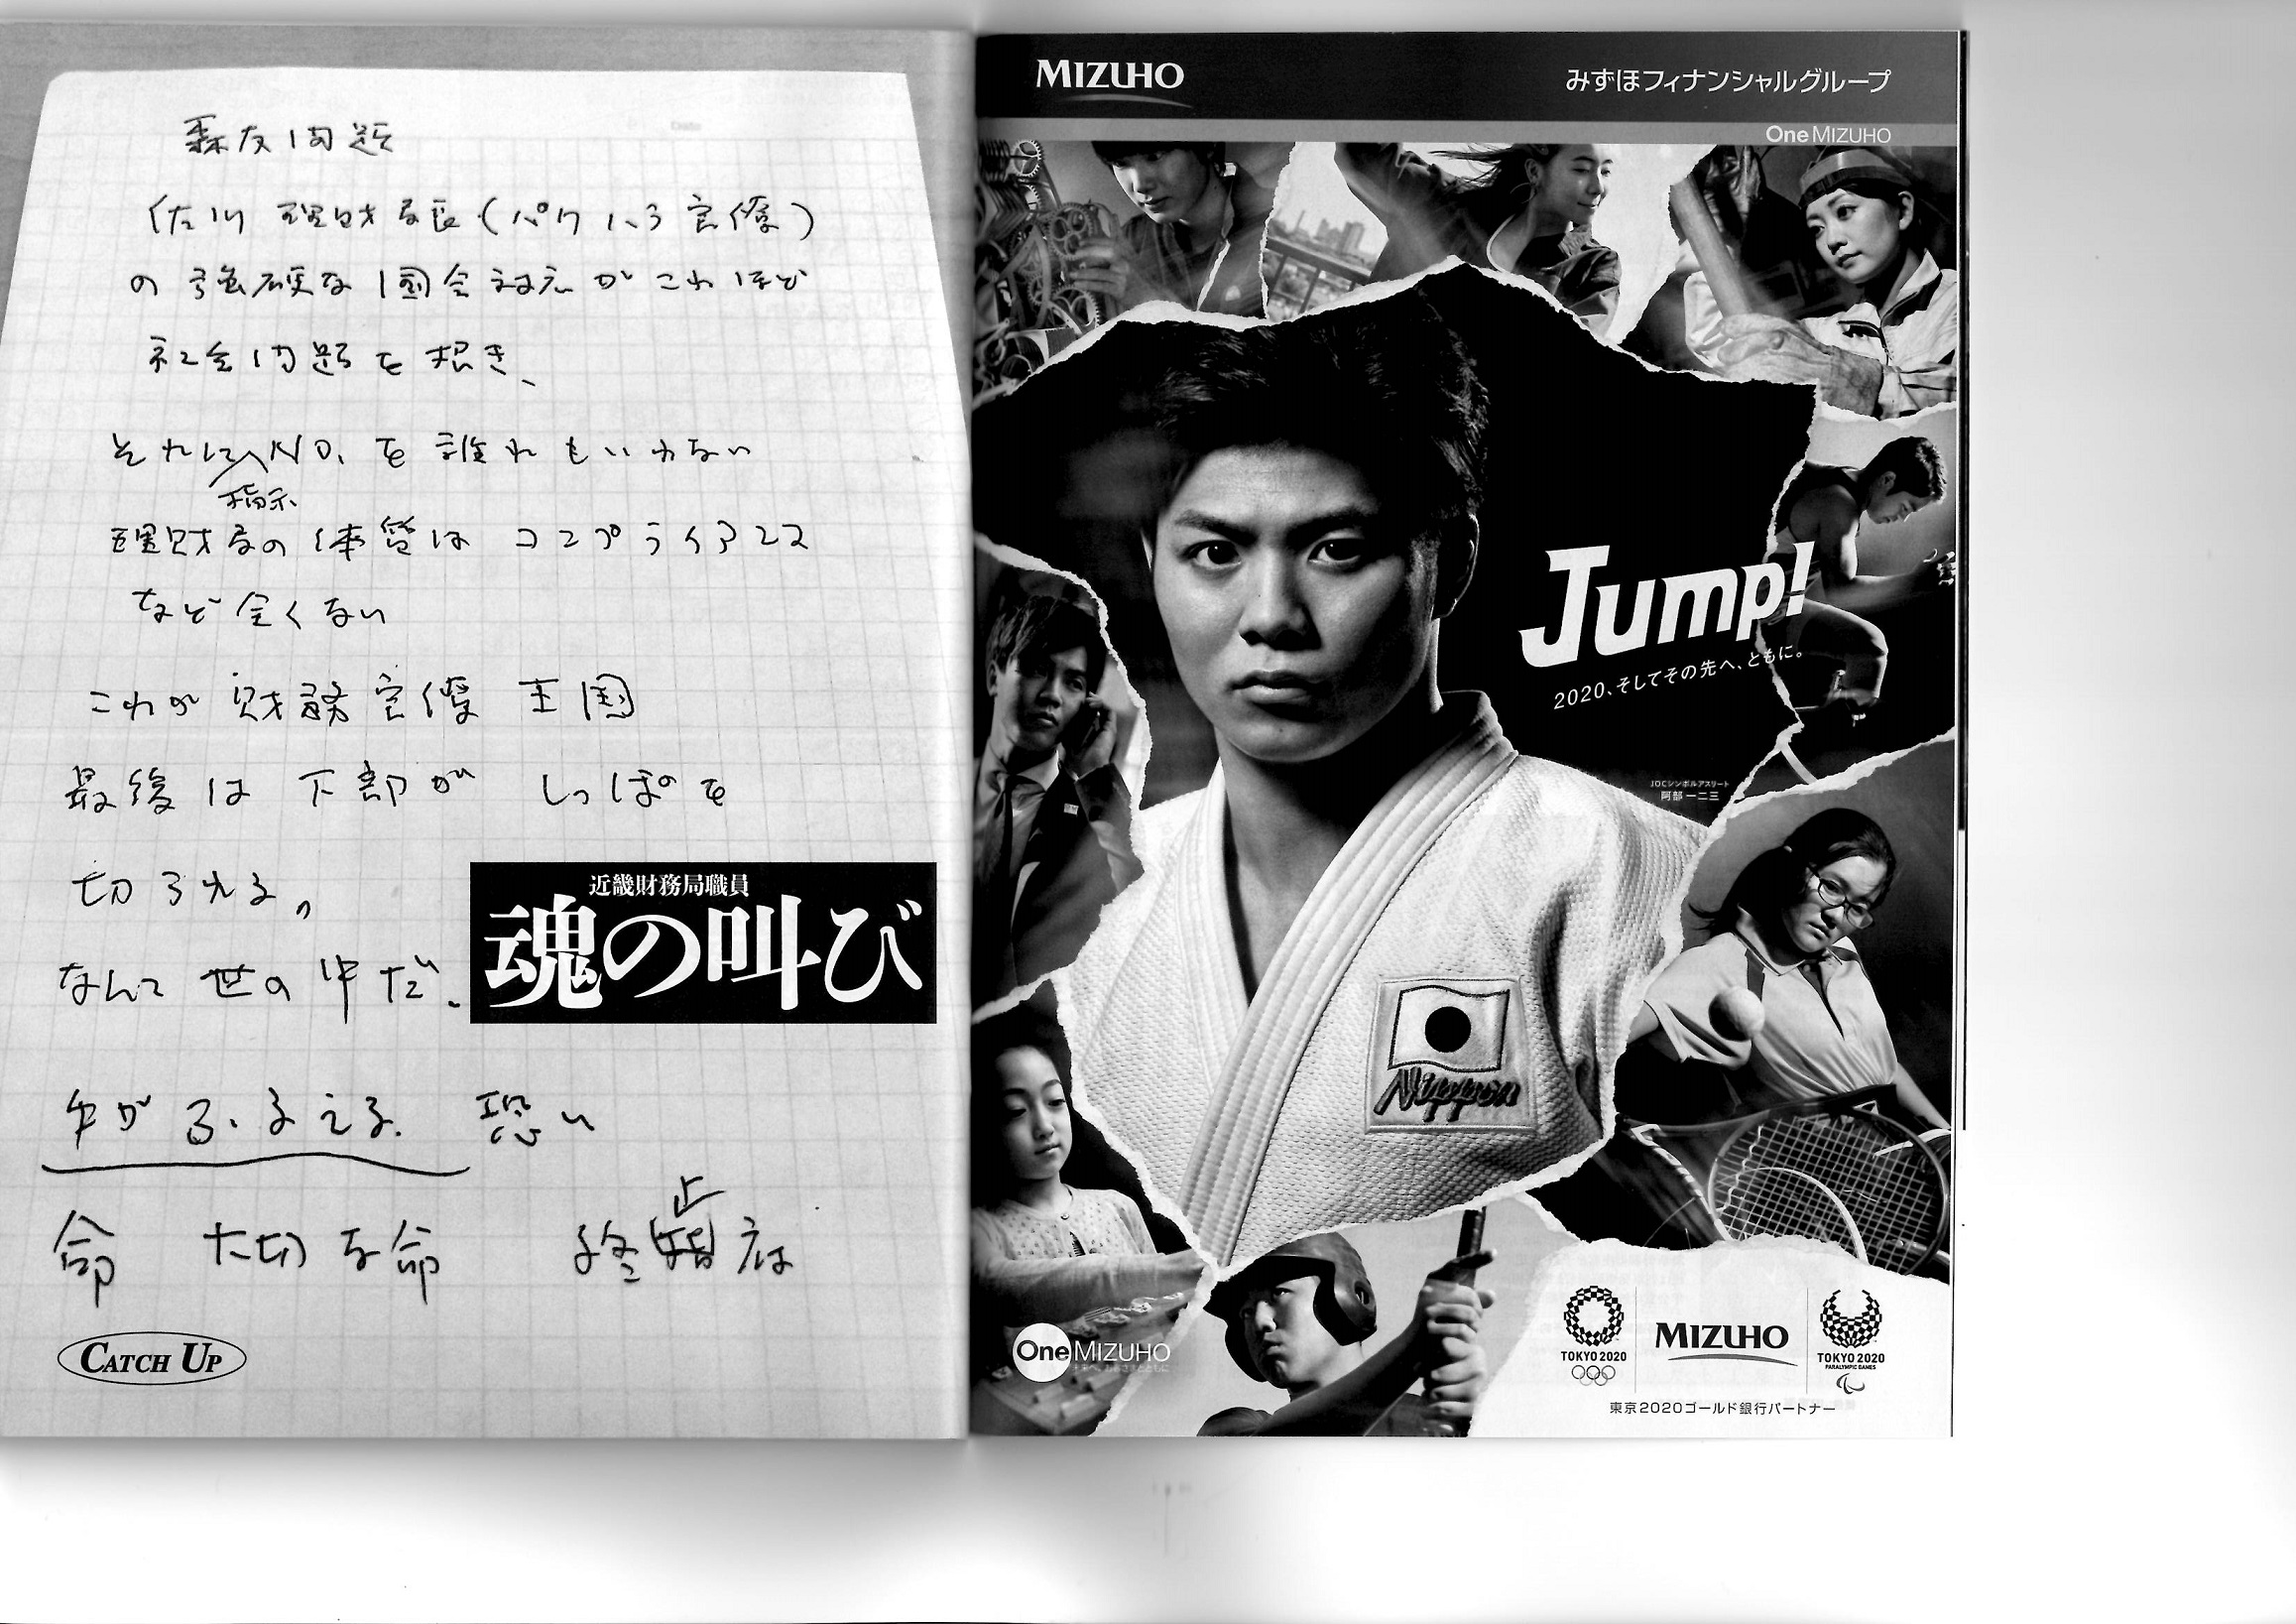 森友問題
佐川理財局長(パワハラ官僚)
の強硬な国会対応がこれほど
社会問題を招き、
それにNO.を誰れもいわない
指示
理財局の体質はコンプライアンス
など全くない
これが財務官僚王国
最後は下部がしっぽを
切られる。
なんて世の中だ、
手がふるえる. 恐い
命 大切な命 終止府
CATCH UP
近畿財務局職員
魂の叫び
MIZUHO
みずほフィナンシャルグループ
One MIZUHO
Jump!
2020、そしてその先へ、ともに。
JOCシンボルアスリート
阿部 一二三
Nippon
One MIZUHO
TOKYO 2020
MIZUHO
TOKYO 2020
PARALYMPIC GAMES
東京2020ゴールド銀行パートナー